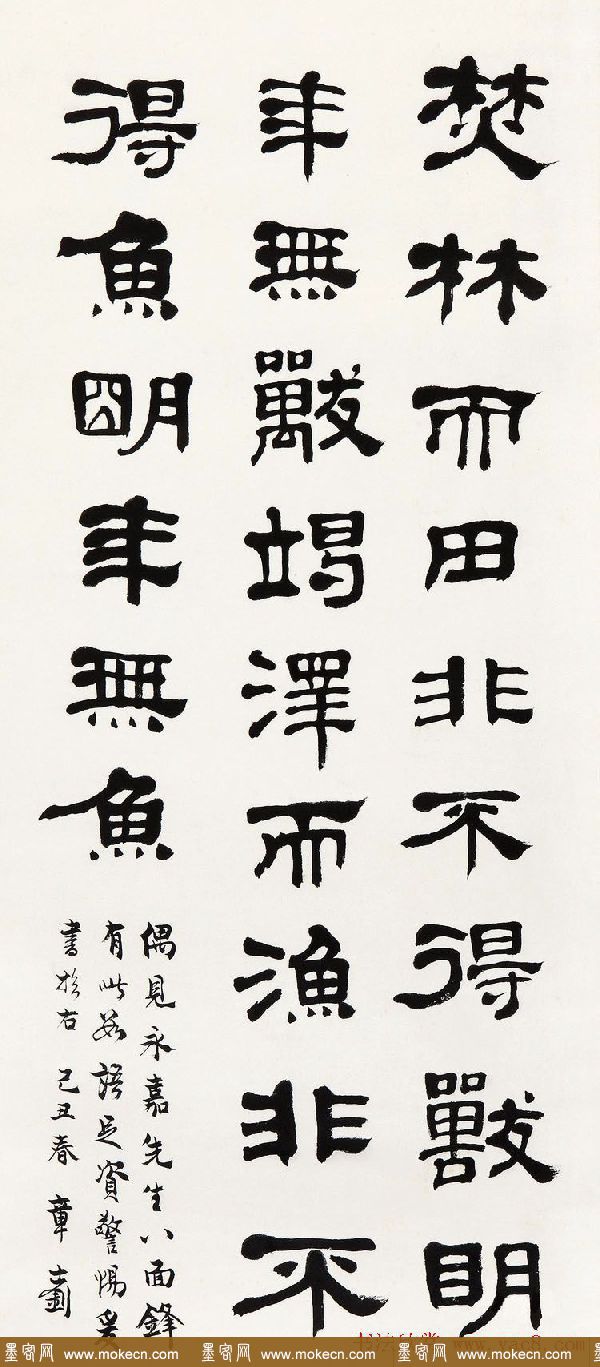 焚林而田非不得獸明
年無獸竭澤而漁非不
得魚明年無魚
偶見永嘉先生八面鋒
有此數語足資警惕爰
書於右 己丑春 章
www.yac8.com
墨客网 www.mokecn.com 墨客网 www.mokecn.com 墨客网 www.mokecn.com